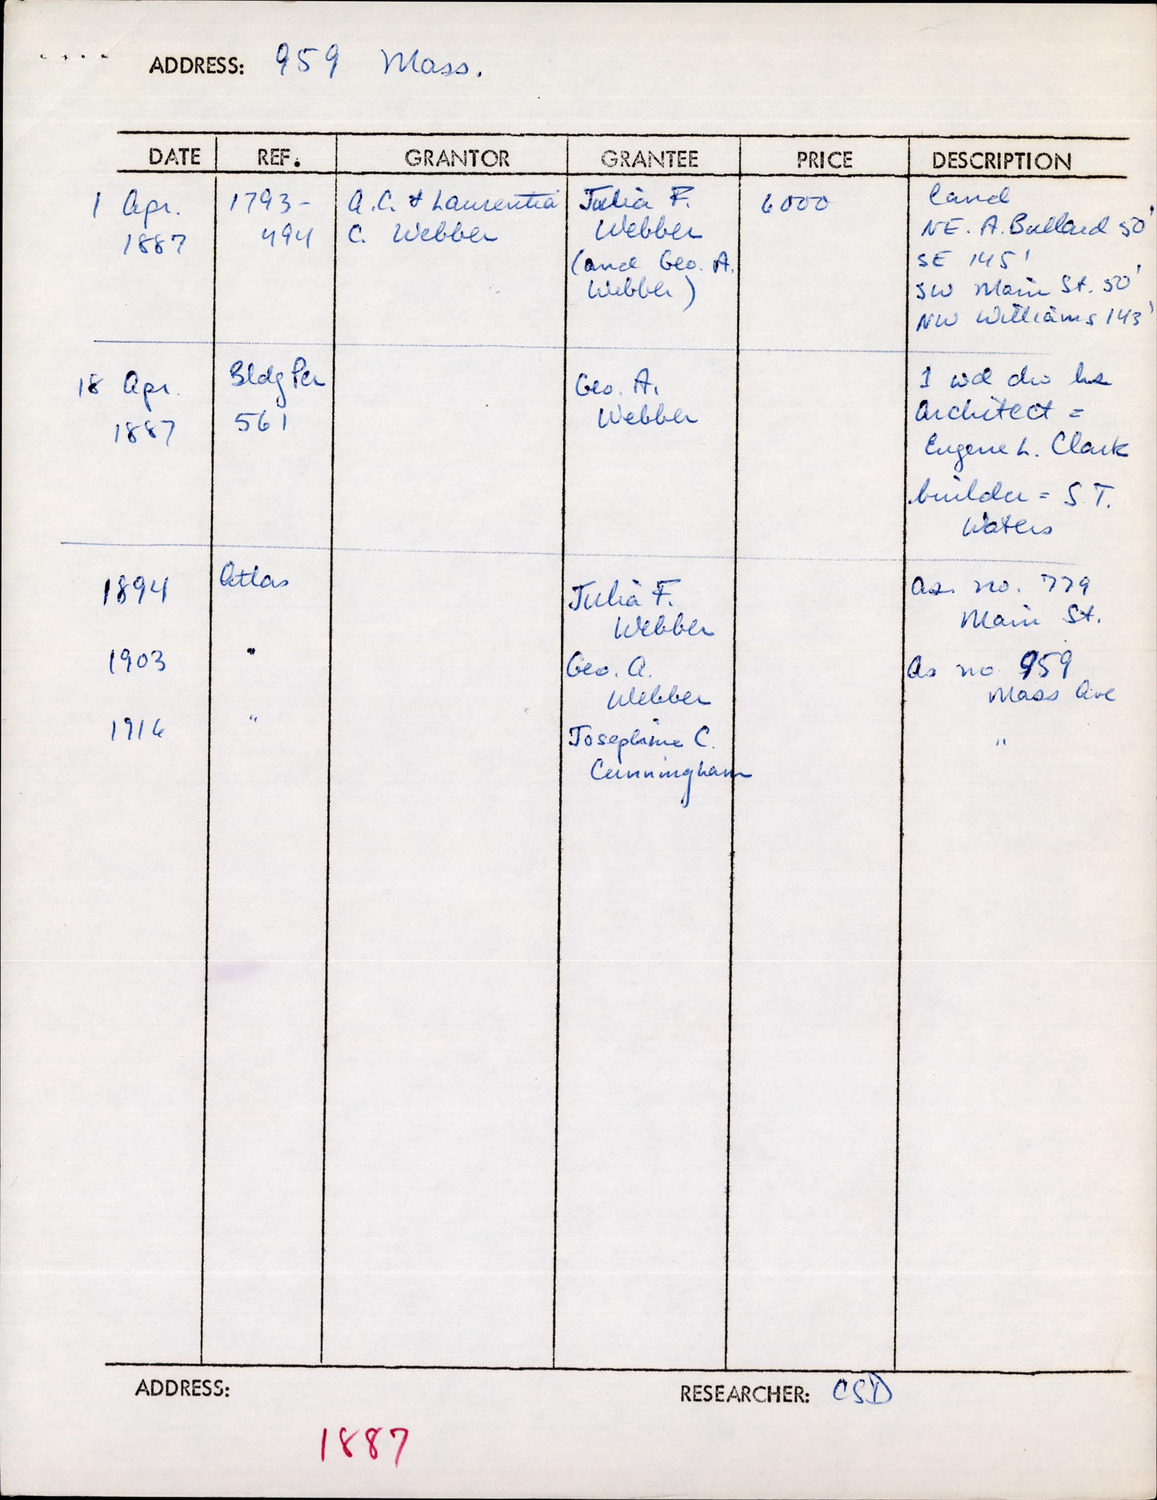 ADDRESS: 959 Mass.
DATE REF. GRANTOR GRANTEE PRICE DESCRIPTION
1 Apr. 1793- A.C. & Laurentia Julia F. 6000 land
1887 494 C. Webber Webber NE. A. Bullard 50'
(and Geo. A. SE 145'
Webber) SW Main St. 50'
NW Williams 143'
18 Apr. Bldg Per Geo. A. 1 wd dw hse
1887 561 Webber architect =
Eugene L. Clark
builder = S.T.
Waters
1894 Atlas Julia F. as no. 779
Webber Main St.
1903 " Geo. A. As no 959
Webber Mass Ave
1916 " Josephine C. "
Cunningham
ADDRESS: RESEARCHER: CSD
1887